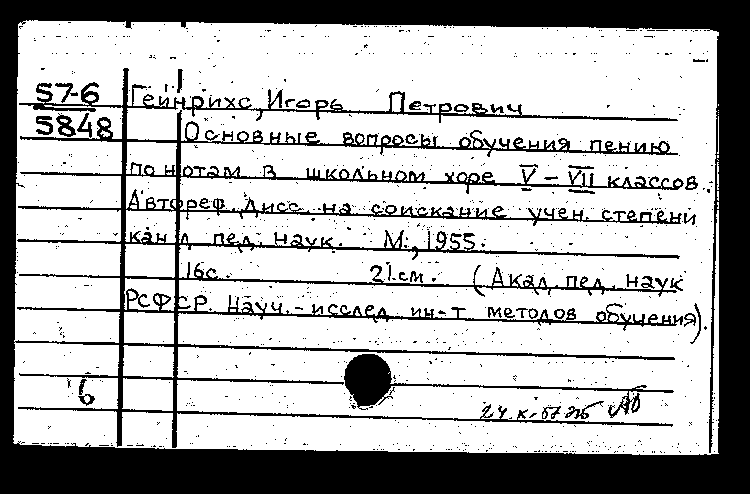 57-6
5848
Гейнрихс, Игорь Петрович
Основные вопросы обучения пению
по нотам в школьном хоре V – VII классов.
Автореф. дисс. на соискание учен. степени
канд. пед. наук. М., 1955.
16 с. 21 см. (Акад. пед. наук
РСФСР. Науч.-исслед. ин-т методов обучения).
б